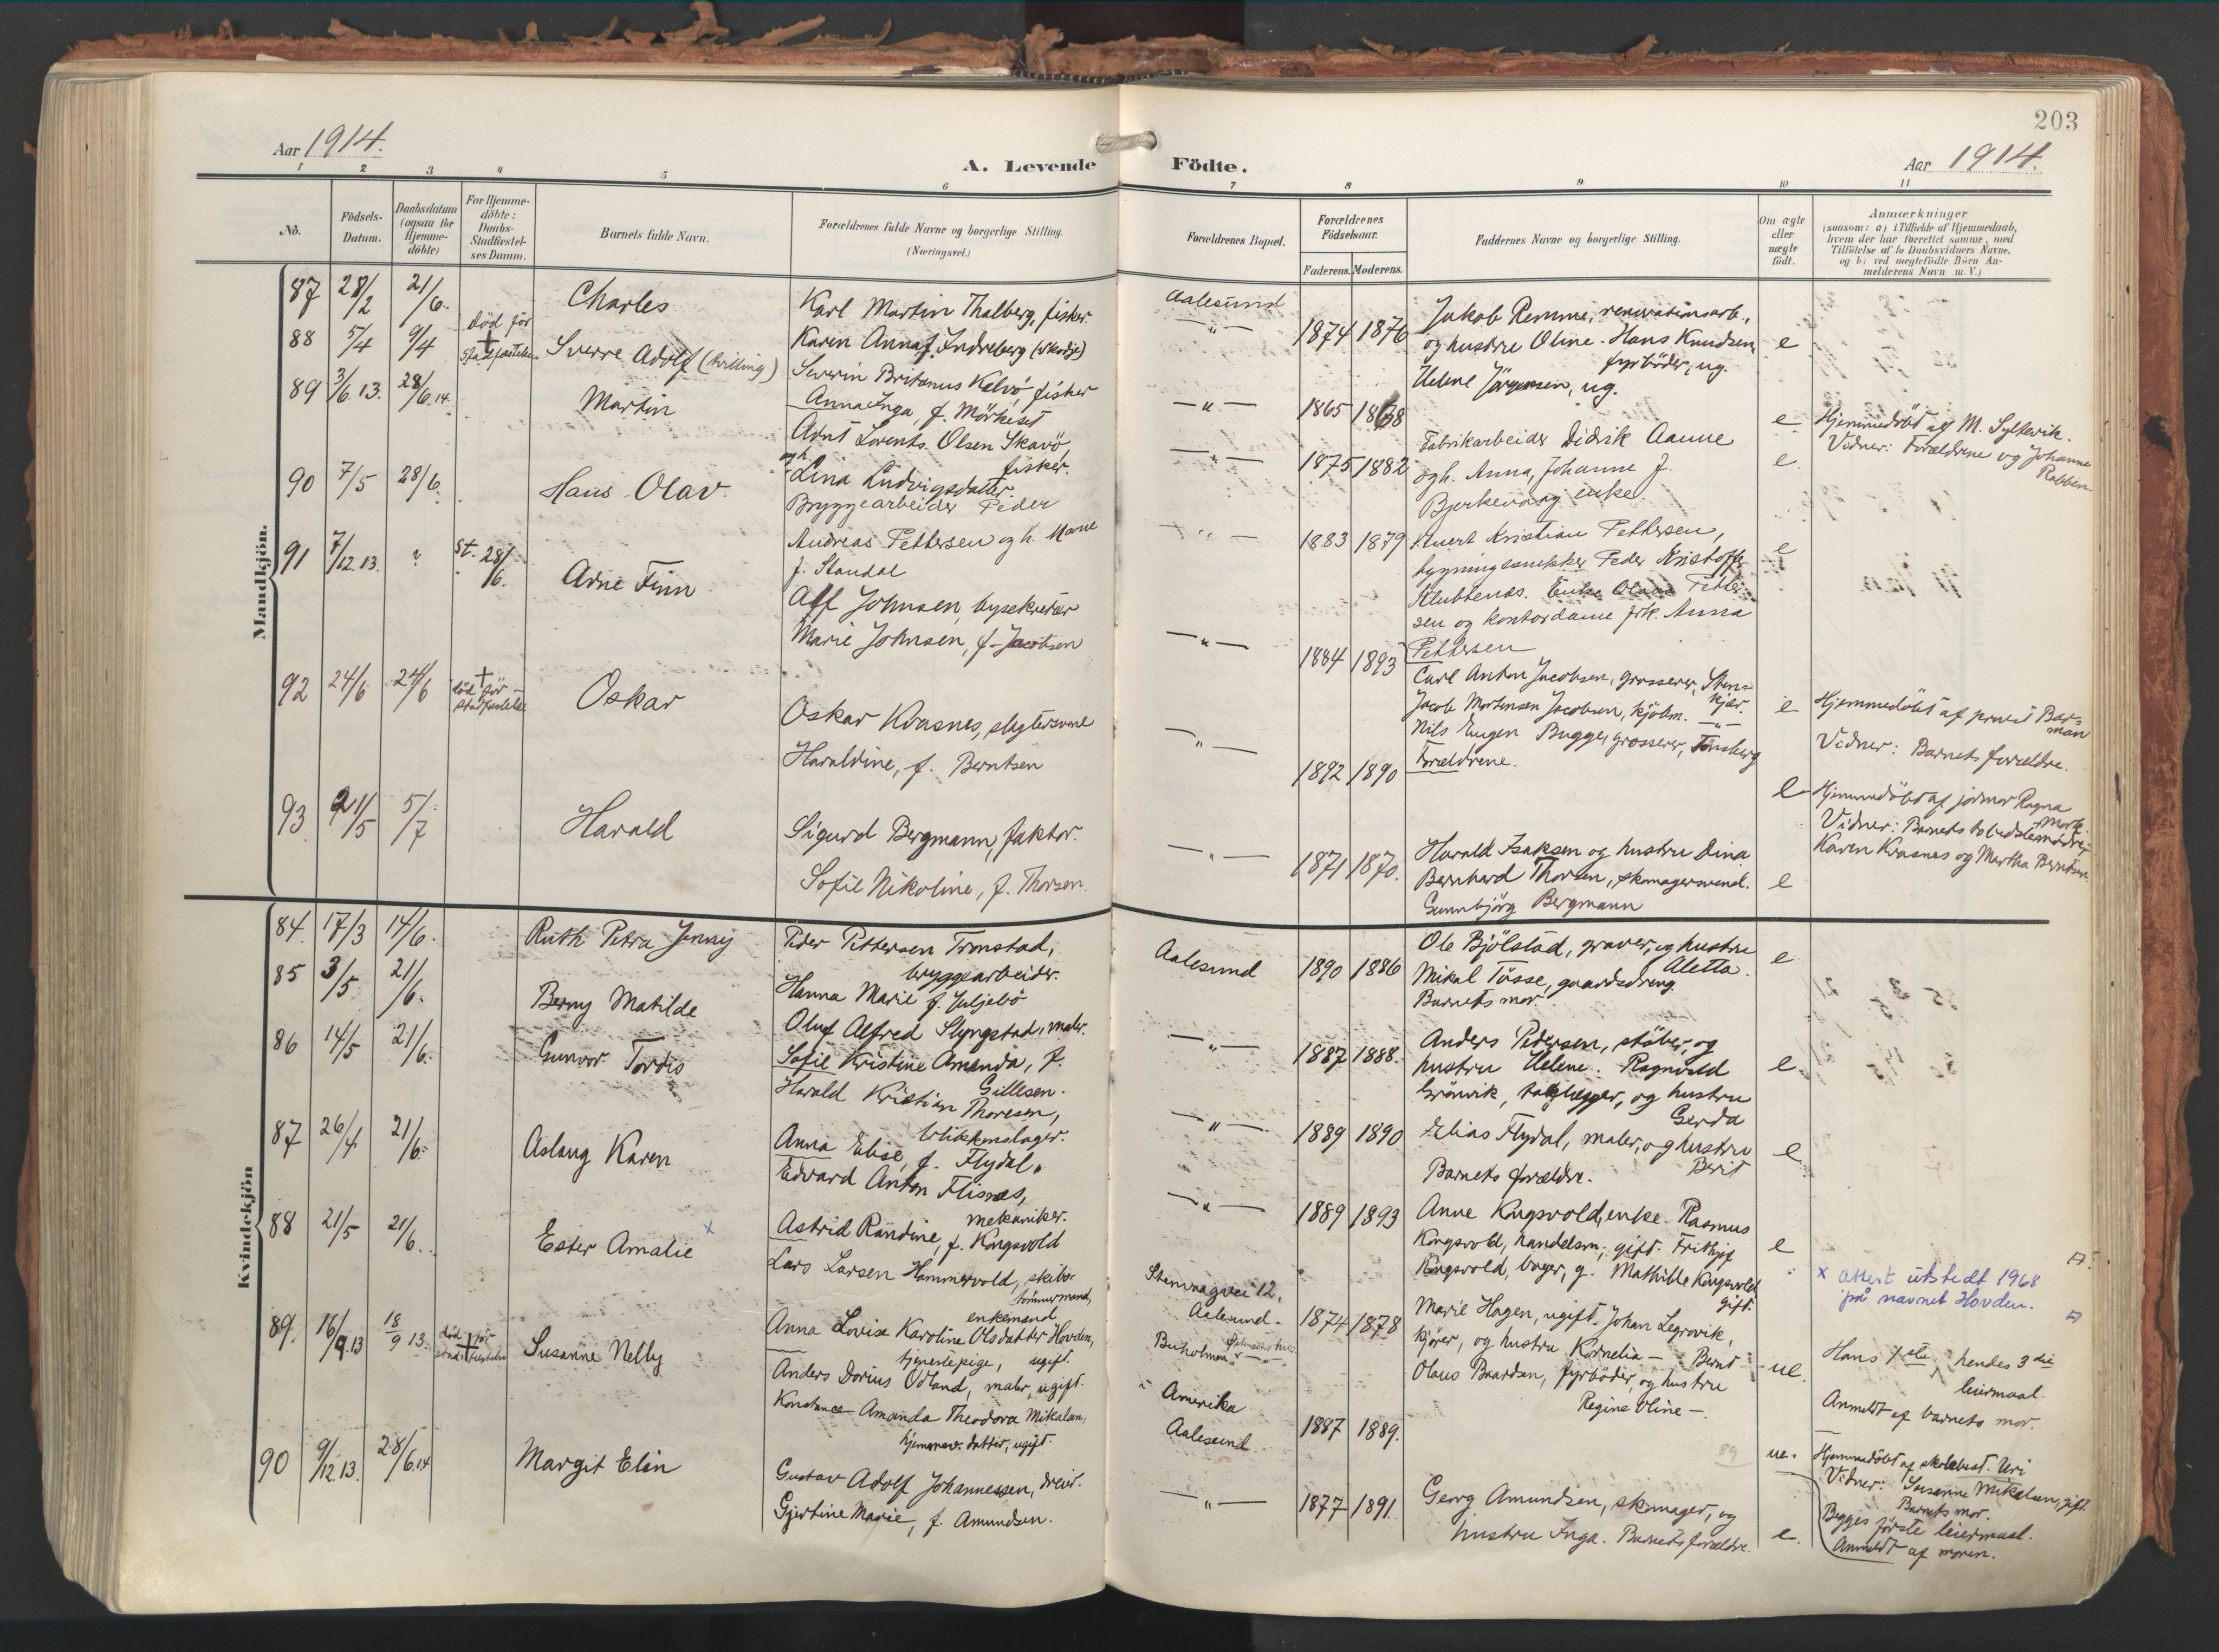 203
Aar 1914.
A. Levende Födte.
Aar 1914.
1 2 3 4 5 6 7 8 9 10 11
No.
Födsels-Datum.
Daabsdatum (ogsaa för Hjemme-döbte)
For Hjemme-döbte: Daabs-Stadfæstel-ses Datum.
Barnets fulde Navn.
Forældrenes fulde Navne og borgerlige Stilling. (Næringsvei.)
Forældrenes Bopæl.
Forældrenes Födselsaar.
Faderens. Moderens.
Faddernes Navne og borgerlige Stilling.
Om ægte eller uægte födt.
Anmærkninger
(saasom: a) i Tilfælde af Hjemmedaab,
hvem der har forrettet samme, med
Tilföielse af to Daabsvidners Navne.
og b) ved uægtefödte Börn An-
melderens Navn m. V.)
Mandkjön.
87 28/2 21/6. Charles
Karl Martin Thalberg, fisker.
Karen Anna f. Indreberg (Skodje)
Aalesund
-"- 1874 1876
Jakob Remme, renovationsarb.,
og hustru Oline. Hans Knudsen,
fyrböder, ug.
Helene Jörgensen, ug.
e
88 5/4 9/4 död för stadfæstelse Sverre Adolf (tvilling)
Severin Britanus Kalvö, fisker
Anna Inga, f. Mörkeset
-"- 1865 1868
e
Hjemmedöbt af M. Syltevik.
Vidner: Forældrene og Johanne
Rabben.
89 3/6.13. 28/6.14. Martin
Arnt Lorents Olsen Skavö,
fisker.
og h.
Lina Ludvigsdatter.
-"- 1875 1882
Fabrikarbeider Didrik Aanne
og h. Anna, Johanne J.
Bjerkevaag enke.
e.
90 7/5 28/6. Hans Olav.
Bryggearbeider Peder
Andreas Pettersen og h. Marie
f. Standal
-"- 1883 1879
Knert Kristian Pettersen,
bygningssnekker Peder Kristoffer
Klubbenes. Enke Olave Petter
sen og kontordame frk. Anna
Pettersen
e
91 7/12.13. ? St. 28/6. Arne Finn
Alf Johnsen, bysekretær
Marie Johnsen, f. Jacobsen
-"- 1884 1893
Carl Anton Jacobsen, grosserer, Sten=
kjær.
Jacob Mortensen Jacobsen, kjöbm. -"-
Nils Eugen Bugge, grosserer, Tönsberg
Forældrene.
e
Hjemmedöbt af provst Bar=
man
Vidner: Barnets forældre.
92 24/6 24/6 död för stadfæstelse Oskar
Oskar Krasnes, slagtersvend
Haraldine, f. Berntsen
-"- 1892 1890
e
Hjemmedöbt af jormor Ragna
Mork.
Vidner: Barnets bedstemödre,
Karen Krasnes og Martha Berntsen
93 21/5 5/7 Harald
Sigurd Bergmann, faktor.
Sofie Nikoline, f. Thorsen.
-"- 1871 1870.
Harald Isaksen og hustru Dina
Bernhard Thorsen, skomagersvend.
Gunnbjörg Bergmann
e
Kvindekjön
84. 17/3 14/6. Ruth Petra Jenny
Peder Pettersen Tronstad,
bryggearbeidr.
Hanna Marie f. Juljebö
Aalesund 1890 1886
Ole Bjölstad, graver, og hustru
Aletta.
Mikal Tösse, gaardsdreng.
Barnets mor.
e
85 3/5 21/6. Berny Matilde
Oluf Alfred Slyngstad, maler.
Sofie Kristine Amanda, f.
Gillesen.
-"- 1887 1888.
Anders Pedersen, stöber, og
hustru Helene. Ragnvald
Grönvik, taglægger, og hustru
Gerda
e
86 14/5 21/6. Gunvor Tordis
Harald Kristian Thoresen,
blikkenslager.
Anna Elise, f. Flydal.
-"- 1889 1890
Elias Flydal, maler, og hustru
Berit
Barnets forældre.
e
87 26/4 21/6. Aslaug Karen
Edvard Anton Flisnes,
mekaniker.
Astrid Randine, f. Kongsvold
-"- 1889 1893
Anne Kongsvold, enke. Rasmus
Kongsvold, handelsm., gift. Frithjof
Kongsvold, bager, g. Mathilde Kongsvold
gift.
e
88 21/5 21/6. Ester Amalie x
Lars Larsen Hammervold, skibs-
tömmermand,
enkemand
Anna Lovise Karoline Olsdatter Hovden,
tjenestepige, ugift.
Stenvaagvei 12,
Aalesund.
Buholmen -"-
1874 1878
Marie Hagen, ugift. Johan Legrovik,
kjörer, og hustru Kornelia — Bernt
Olaus Baardsen, fyrböder, og hustru
Regine Oline —.
ue.
x Attest utstedt 1968
på navnet Hovden.
Hans 1ste, hendes 3die
leiermaal.
Anmeldt af barnets mor.
89. 16/9.13 18/9 13. död för stadfæstelse Susanne Nelly
Anders Dorius Ödland, maler, ugift.
Konstance Amanda Theodora Mikalsen,
hjemmev. datter, ugift.
Amerika
Aalesund
1887 1889.
ue.
Hjemmedöbt af skolebest. Uri
Vidner: Susanne Mikalsen, gift.
Barnets mor.
Begges förste leiermaal.
Anmeldt af moren.
90 9/12.13. 28/6.14 Margit Elin
Gustav Adolf Johannessen, dreier.
Gjertine Marie, f. Amundsen.
-"- 1877 1891.
Georg Amundsen, skomager, og
hustru Inga. Barnets forældre.
e.